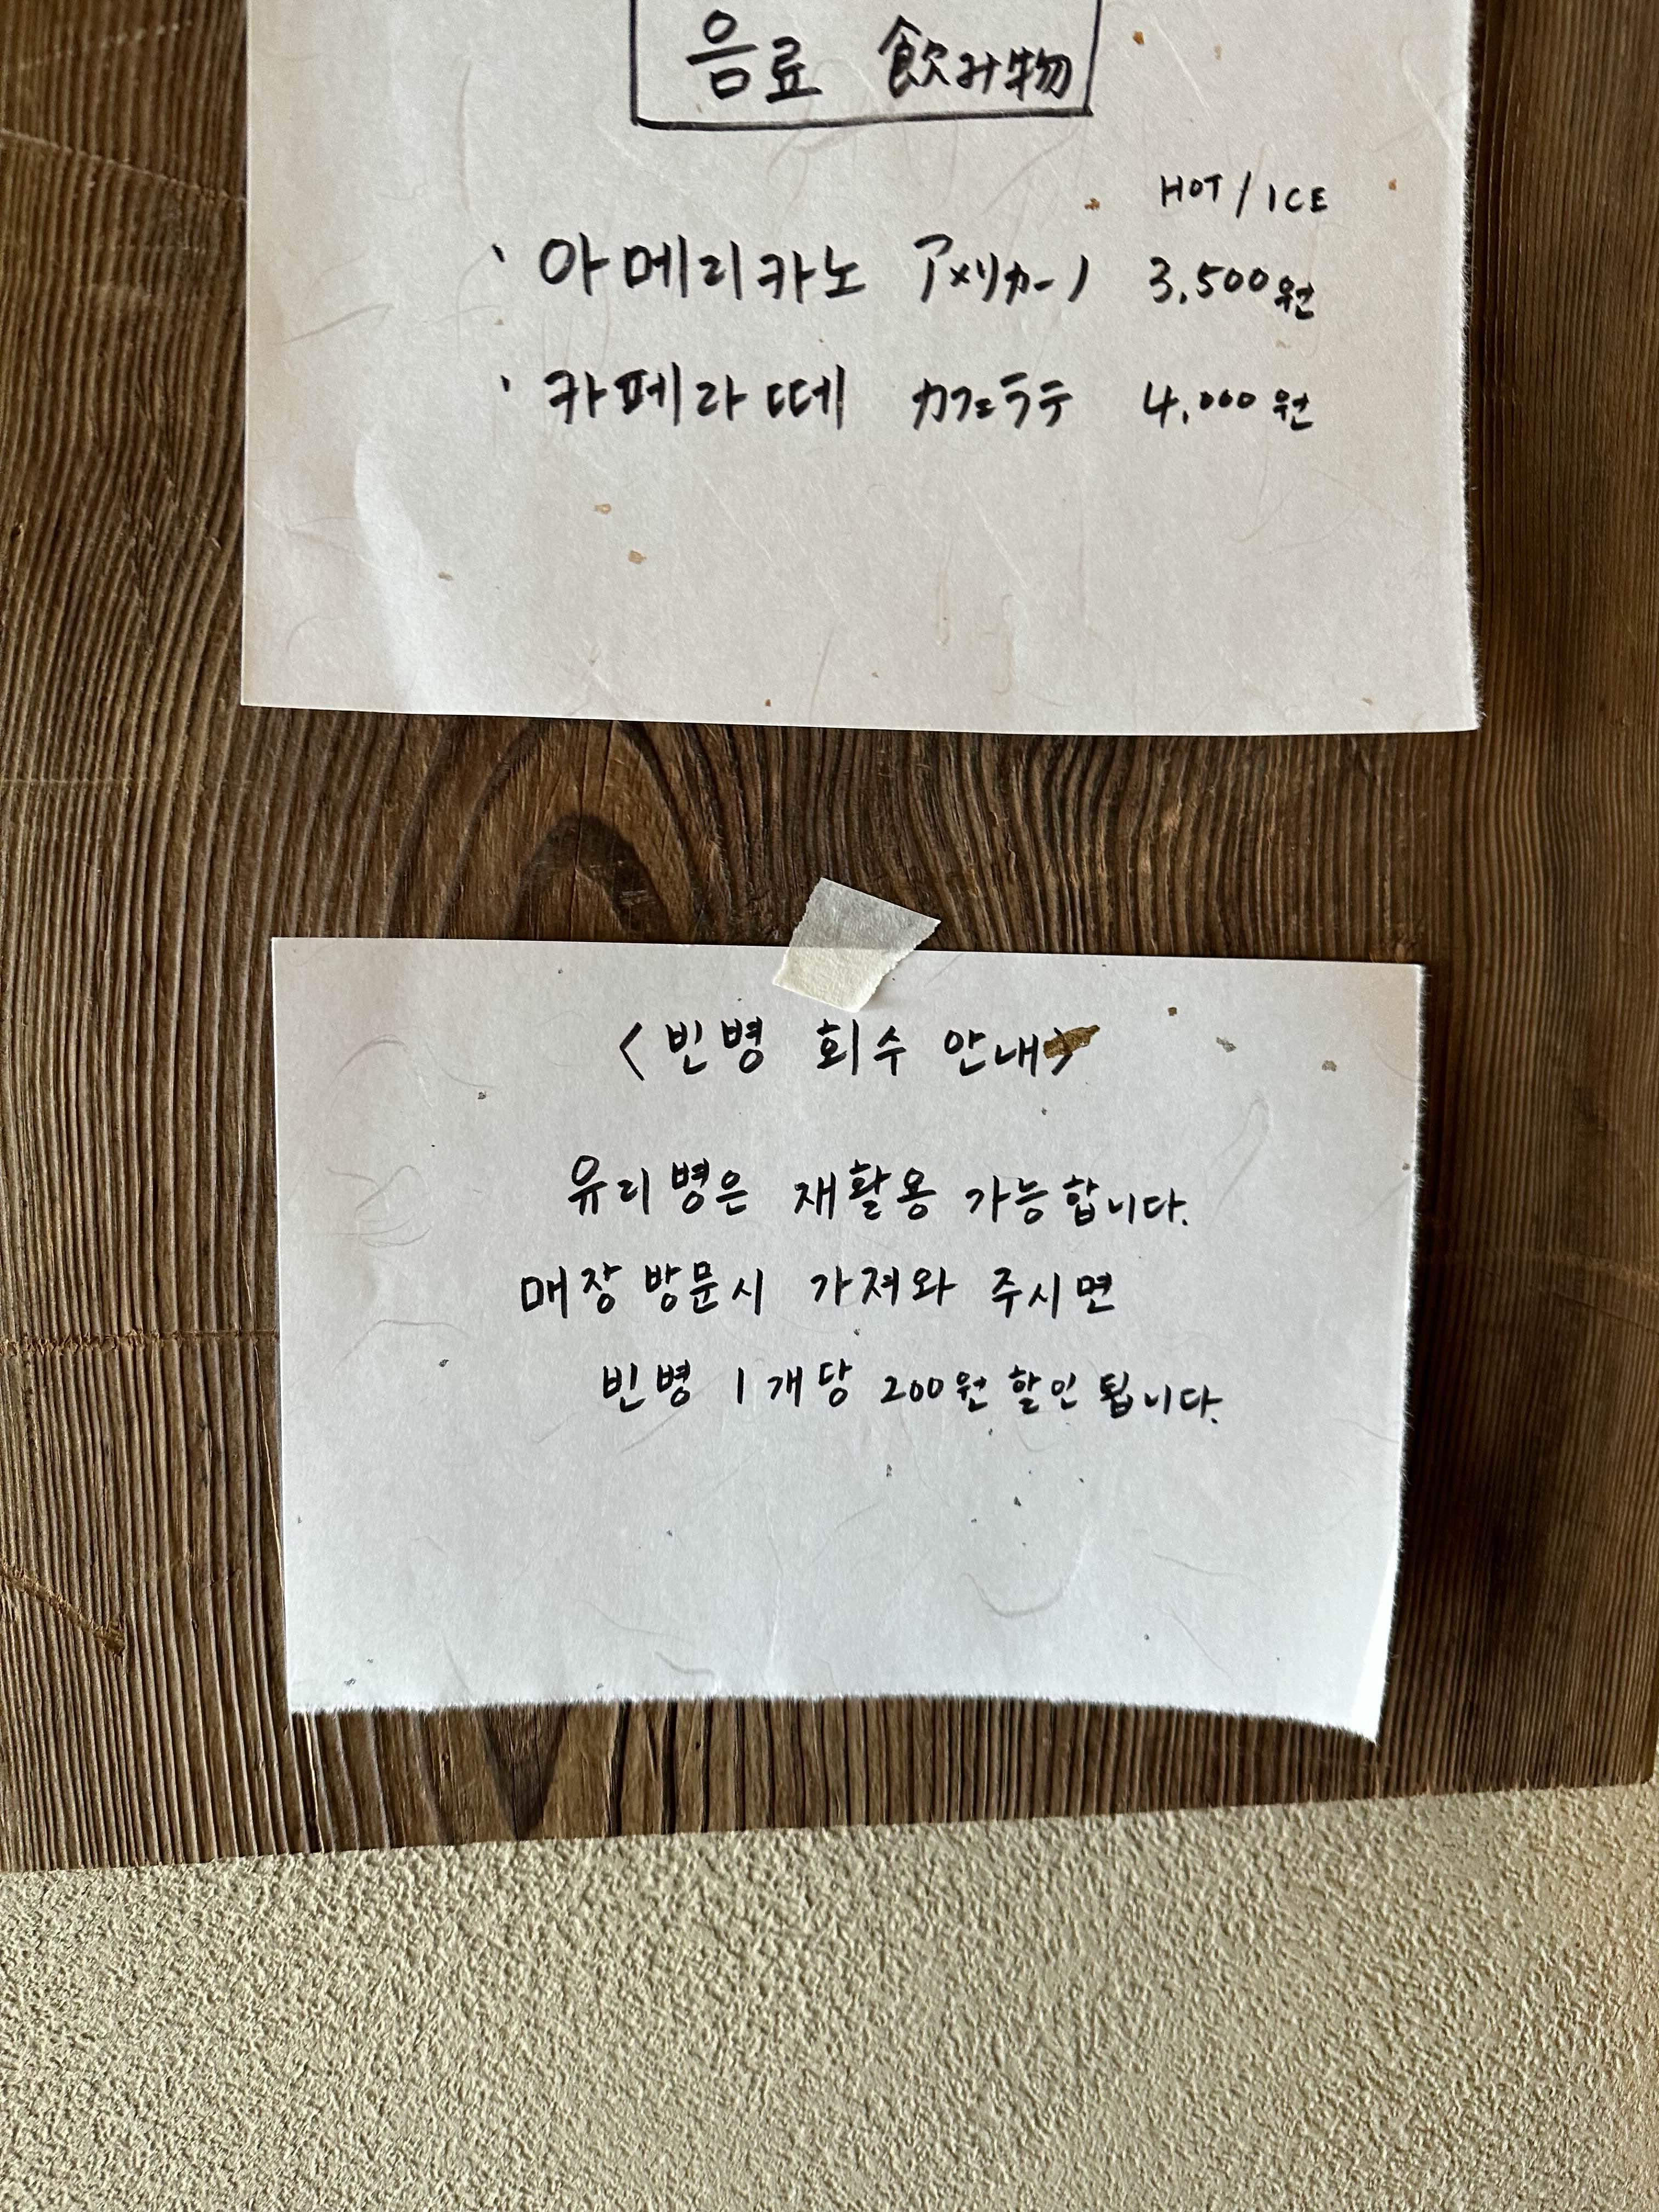 음료 飲み物
HOT / ICE
· 아메리카노 アメリカーノ 3,500원
· 카페라떼 カフェラテ 4,000원
<빈병 회수 안내>
유리병은 재활용 가능합니다.
매장 방문시 가져와 주시면
빈병 1개당 200원 할인 됩니다.